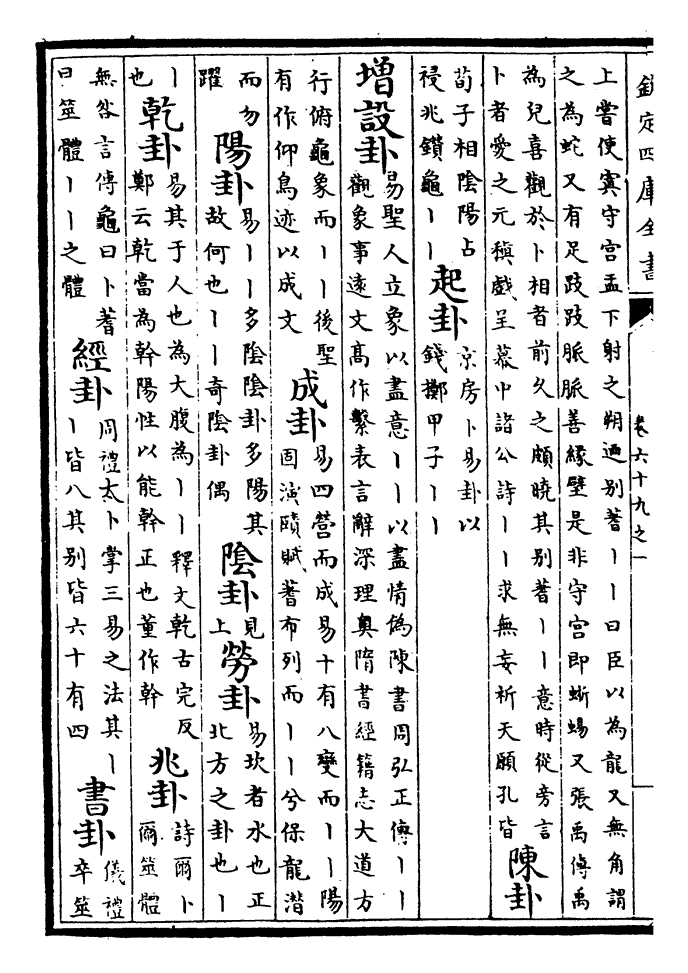 欽定四庫全書
卷六十九之一
上嘗使寘守宫盂下射之朔迺別蓍丨丨曰臣以為龍又無角謂
之為蛇又有足跂跂脈脈善緣壁是非守宫即蜥蜴又張禹傳禹
為兒喜觀於卜相者前久之頗曉其別蓍丨丨意時從旁言
卜者愛之元稹戲呈幕中諸公詩丨丨求無妄祈天願孔皆
陳卦
荀子相隂陽占
祲兆鑽龜丨丨
起卦
京房卜易卦以
錢擲甲子丨丨
增設卦
易聖人立象以盡意丨丨以盡情偽陳書周弘正傳丨丨
觀象事逺文髙作繫表言辭深理奥隋書經籍志大道方
行俯龜象而丨丨後聖
有作仰鳥迹以成文
成卦
易四營而成易十有八變而丨丨陽
固演賾賦蓍布列而丨丨兮保龍潛
而勿
躍
陽卦
易丨丨多隂隂卦多陽其
故何也丨丨奇隂卦偶
隂卦
見
上
勞卦
易坎者水也正
北方之卦也丨
丨
也
乾卦
易其于人也為大腹為丨丨釋文乾古完反
鄭云乾當為幹陽性以能幹正也董作幹
兆卦
詩爾卜
爾筮體
無咎言傳龜曰卜蓍
曰筮體丨丨之體
經卦
周禮太卜掌三易之法其丨
丨皆八其別皆六十有四
書卦
儀禮
卒筮